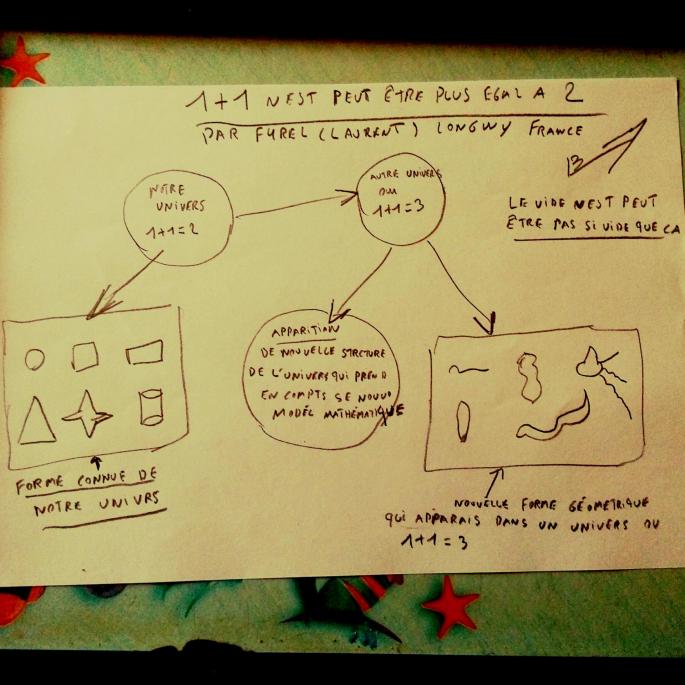 1+1 NEST PEUT ÊTRE PLUS EGAL A 2
PAR FYREL (LAURENT) LONGWY FRANCE
13
LE VIDE NEST PEUT
ÊTRE PAS SI VIDE QUE CA
NOTRE
UNIVERS
1+1=2
AUTRE UNIVERS
OU
1+1=3
APPARITION
DE NOUVELLE STRCTURE
DE L'UNIVERS QUI PREND
EN COMPTS SE NOUVO
MODÉL MATHÉMATIQUE
FORME CONNUE DE
NOTRE UNIVRS
NOUVELLE FORME GÉOMETRIQUE
QUI APPARAIS DANS UN UNIVERS OU
1+1=3